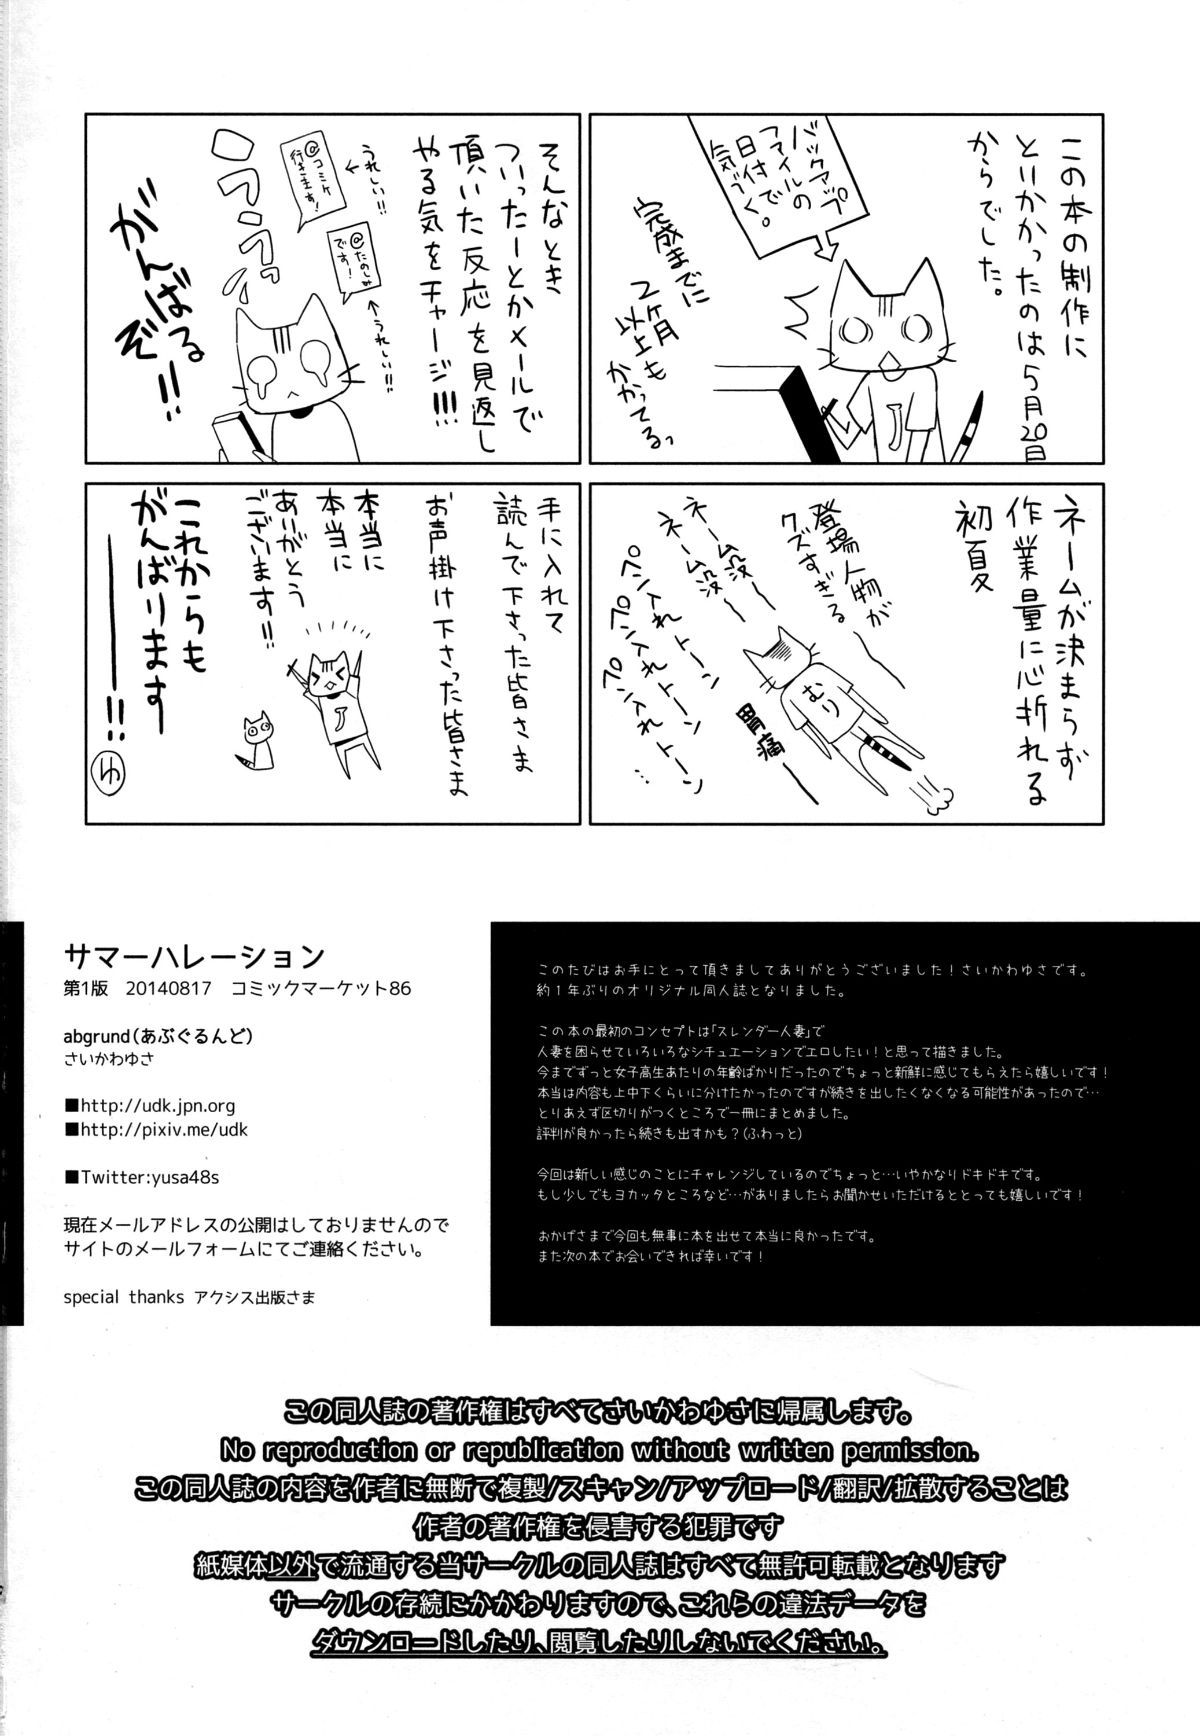 この本の制作に
とりかかったのは5月20日
からでした。
バックアップ
ファイルの
日付で
気づく。
完成までに
2ヶ月
以上も
かかってるっ
ネームが決まらず
作業量に心折れる
初夏
登場人物が
クズすぎる
ネーム没ー
ネーム没ー
ペン入れトーン
ペン入れトーン
ペン入れトーン
むり
胃痛ー
そんなとき
ついったーとかメールで
頂いた反応を見返し
やる気をチャージ!!!
うれしい!!
@コミケ
行きます!
@たのしみ
です!
うれしい!!
うううっ
がんばる
ぞ!!
手に入れて
読んで下さった皆さま
お声掛け下さった皆さま
本当に
本当に
ありがとう
ございます!!
これからも
がんばります
――!!
ゆ
サマーハレーション
第1版 20140817 コミックマーケット86
abgrund(あぶぐるんど)
さいかわゆさ
■http://udk.jpn.org
■http://pixiv.me/udk
■Twitter:yusa48s
現在メールアドレスの公開はしておりませんので
サイトのメールフォームにてご連絡ください。
special thanks アクシス出版さま
このたびはお手にとって頂きましてありがとうございました!さいかわゆさです。
約1年ぶりのオリジナル同人誌となりました。
この本の最初のコンセプトは「スレンダー人妻」で
人妻を困らせていろいろなシチュエーションでエロしたい!と思って描きました。
今までずっと女子高生あたりの年齢ばかりだったのでちょっと新鮮に感じてもらえたら嬉しいです!
本当は内容も上中下くらいに分けたかったのですが続きを出したくなくなる可能性があったので…
とりあえず区切りがつくところで一冊にまとめました。
評判が良かったら続きも出すかも?(ふわっと)
今回は新しい感じのことにチャレンジしているのでちょっと…いやかなりドキドキです。
もし少しでもヨカッタところなど…がありましたらお聞かせいただけるととっても嬉しいです!
おかげさまで今回も無事に本を出せて本当に良かったです。
また次の本でお会いできれば幸いです!
この同人誌の著作権はすべてさいかわゆさに帰属します。
No reproduction or republication without written permission.
この同人誌の内容を作者に無断で複製/スキャン/アップロード/翻訳/拡散することは
作者の著作権を侵害する犯罪です
紙媒体以外で流通する当サークルの同人誌はすべて無許可転載となります
サークルの存続にかかわりますので、これらの違法データを
ダウンロードしたり、閲覧したりしないでください。